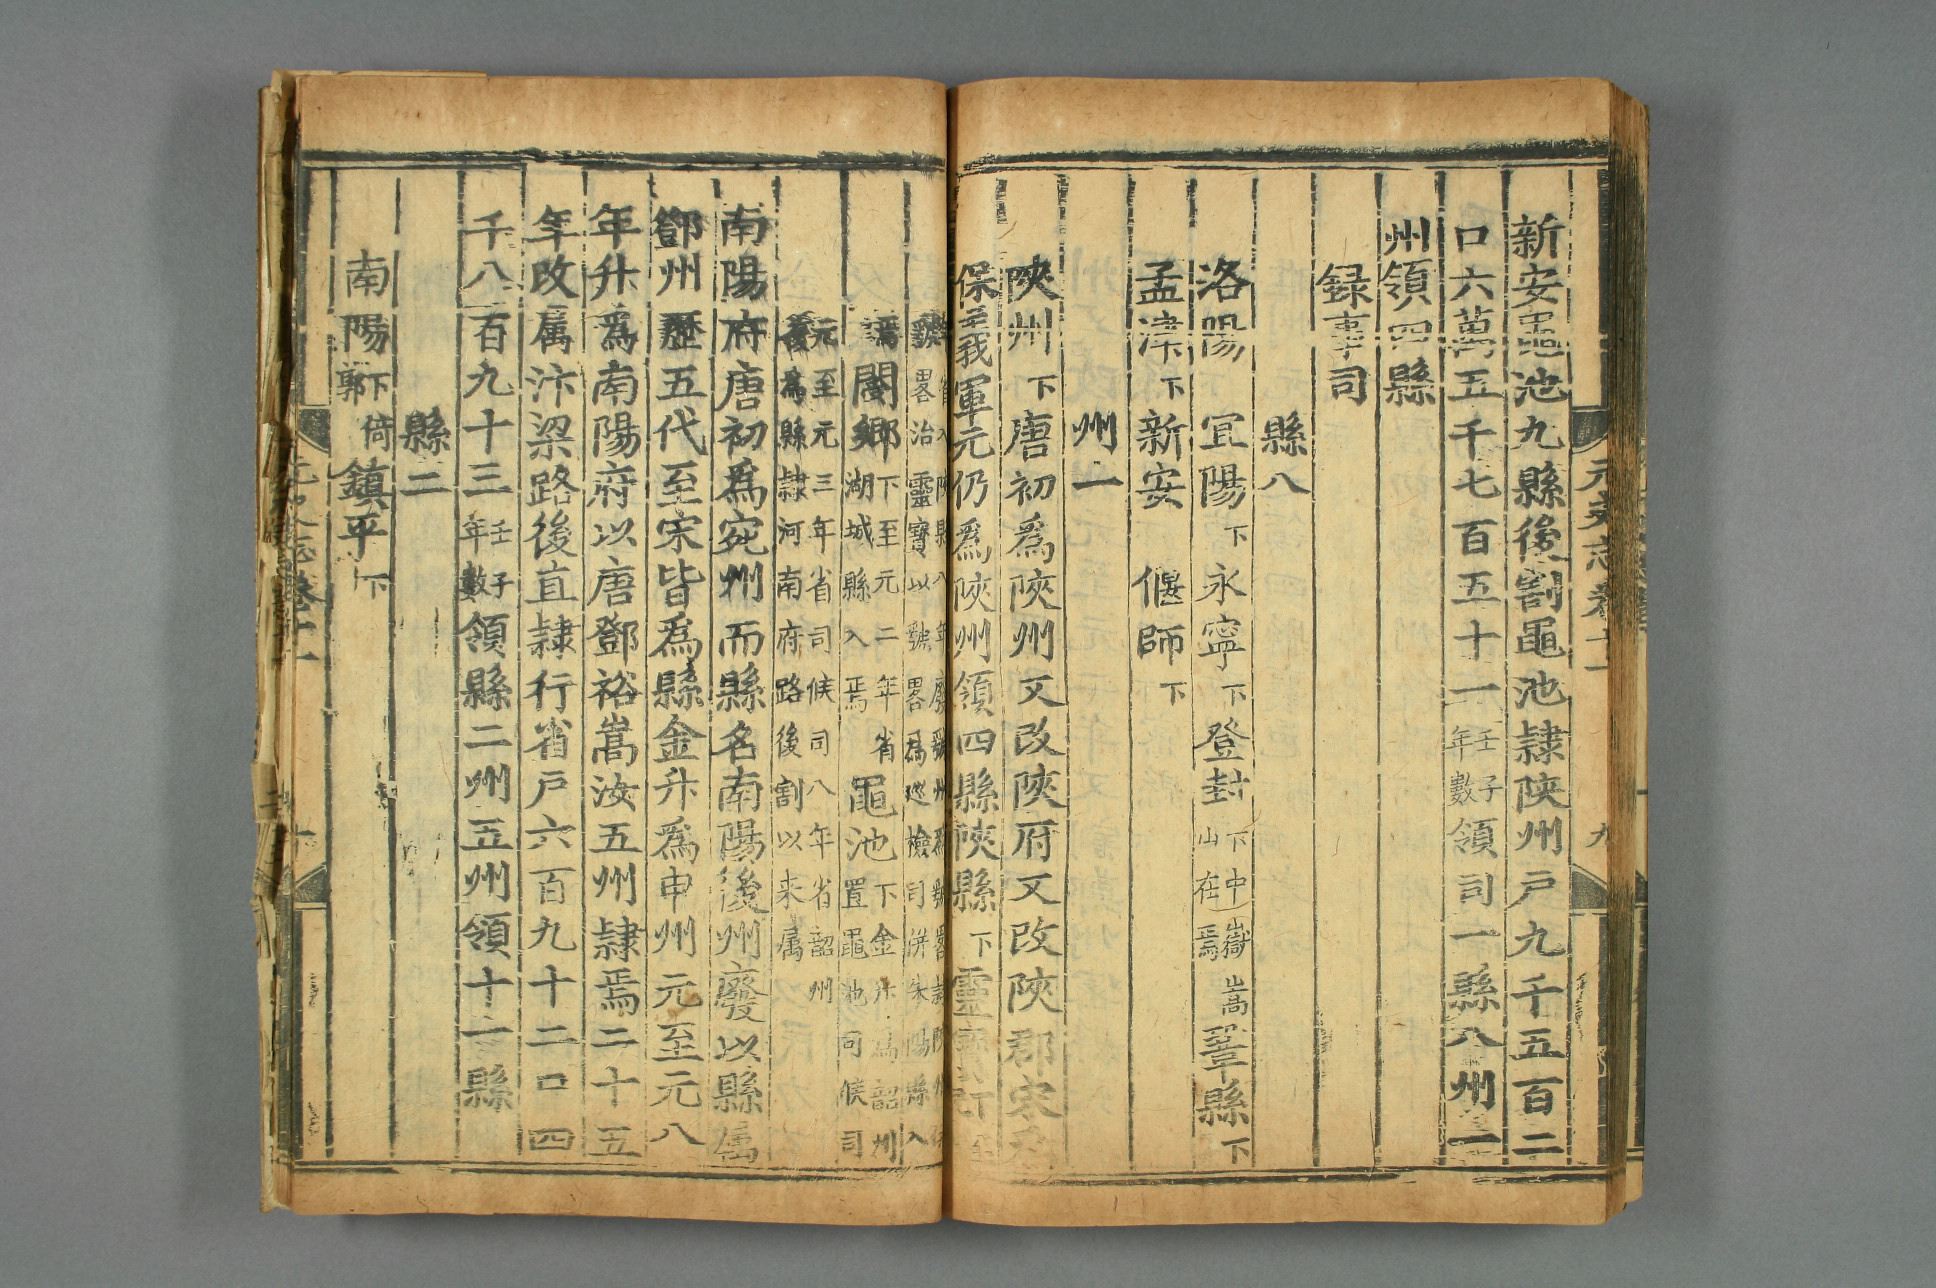 新安黽池九縣後割黽池隷陝州戸九千五百二
口六萬五千七百五十一壬子年數領司一縣八州一
州領四縣
録事司
縣八
洛陽 宜陽下永寧下登封下中嶽嵩山在焉鞏縣下
孟津下新安 偃師下
州一
陝州下唐初爲陝州又改陝府又改陝郡宋
保義軍元仍爲陝州領四縣陝縣下靈寳
虢畧治靈寳以虢畧爲廵檢司併朱陽縣入
焉閿鄉下至元二年省湖城縣入焉黽池下金升爲韶州置黽池司候司
元至元三年省司候司八年省韶州復爲縣隷河南府路後割以来屬
南陽府唐初爲宛州而縣名南陽後州廢以縣属
鄧州歷五代至宋皆爲縣金升爲申州元至元八
年升爲南陽府以唐鄧裕嵩汝五州隷焉二十五
年改属汴梁路後直隷行省戸六百九十二口四
千八百九十三壬子年數領縣二州五州領十一縣
縣二
南陽下倚郭鎮平下
元史志卷十一 九